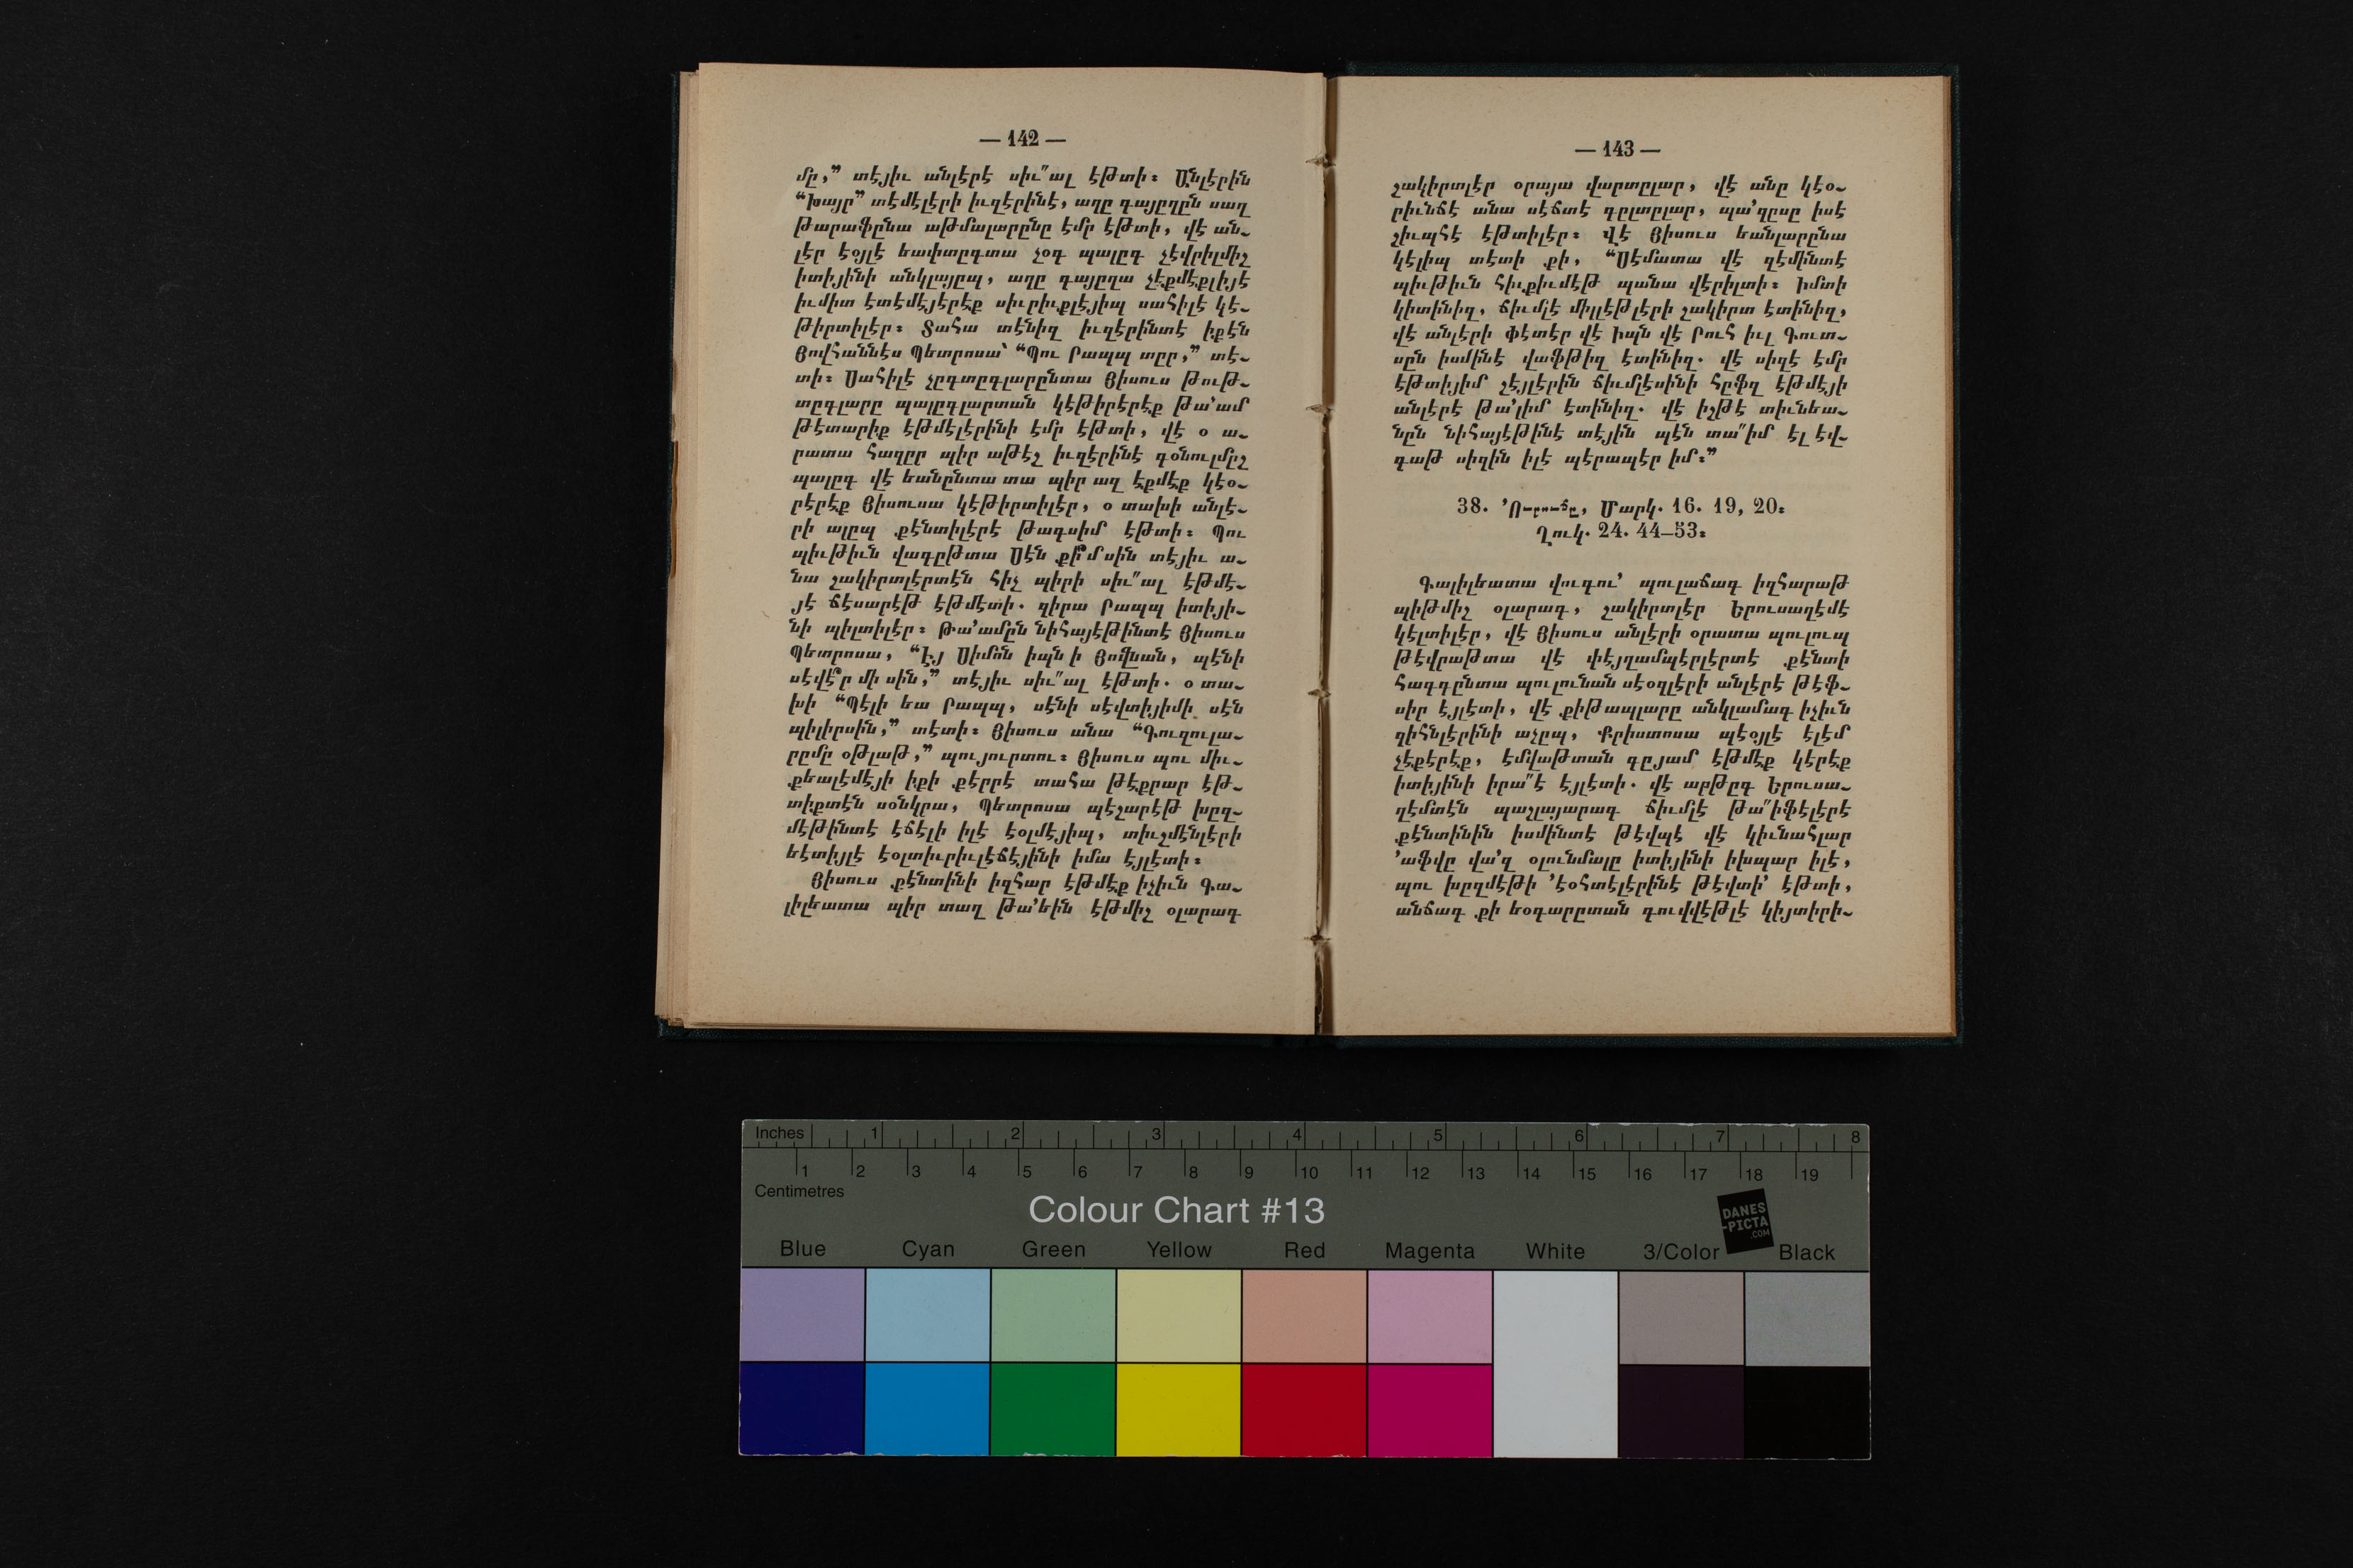 — 142 —
մը,” տէյիւ անլէրէ սիւ՚՚ալ էթտի։ Անլէրին
“Խայր” տէմէլէրի իւզէրինէ, աղը գայըղըն սաղ
թարաֆընա աթմալարընը էմր էթտի, վէ ան-
լէր էօյլէ եափտըգտա չօգ պալըգ չէվրիլմիշ
իտիյինի անկլայըպ, աղը գայըղա չէքմէքլիյէ
իւմիտ էտէմէյէրէք սիւրիւքլէյիպ սահիլէ կէ-
թիրտիլէր։ Տահա տէնիզ իւզէրինտէ իքէն
Յովհաննէս Պետրոսա՝ “Պու Րապպ տըր,” տէ-
տի։ Սահիլէ չըգտըգլարընտա Յիսուս թութ-
տըգլարը պալըգլարտան կէթիրէրէք թա՚ամ
թէտարիք էթմէլէրինի էմր էթտի, վէ օ ա-
րատա հազըր պիր աթէշ իւզէրինէ գօնուլմըշ
պալըգ վէ եանընտա տա պիր ազ էքմէք կէօ-
րէրէք Յիսուսա կէթիրտիլէր, օ տախի անլէ-
րի ալըպ քէնտիլէրէ թագսիմ էթտի։ Պու
պիւթիւն վագըթտա Սէն քի՞մ սին տէյիւ ա-
նա շակիրտլէրտէն հիչ պիրի սիւ՚՚ալ էթմէ-
յէ ճէսարէթ էթմէտի. զիրա Րապպ իտիյի-
նի պիլտիլէր։ Թա՚ամըն նիհայէթինտէ Յիսուս
Պետրոսա, “Էյ Սիմոն իպն ի Յովնան, պէնի
սէվէ՞ր մի սին,” տէյիւ սիւ՚՚ալ էթտի. օ տա-
խի “Պէլի եա Րապպ, սէնի սէվտիյիմի սէն
պիլիրսին,” տէտի։ Յիսուս անա “Գուզուլա-
րըմը օթլաթ,” պույուրտու։ Յիսուս պու միւ-
քեալէմէյի իքի քէրրէ տահա թէքրար էթ-
տիքտէն սօնկրա, Պետրոսա պէշարէթ խըզ-
մէթինտէ էճէլի իլէ էօլմէյիպ, տիւշմէնլէրի
եէտիյլէ էօլտիւրիւլէճէյինի իմա էյլէտի։
Յիսուս քէնտինի իզհար էթմէք իչիւն Գա-
լիլեատա պիր տաղ թա՚եին էթմիշ օլարագ
— 143 —
շակիրտլէր օրայա վարտըլար, վէ անը կէօ-
րիւնճէ անա սէճտէ գըլտըլար, պա՚զըսը իսէ
շիւպհէ էթտիլէր։ Վէ Յիսուս եանլարընա
կէլիպ տէտի քի, “Սէմատա վէ զէմինտէ
պիւթիւն հիւքիւմէթ պանա վէրիլտի։ Իմտի
կիտինիզ, ճիւմլէ միլլէթլէրի շակիրտ էտինիզ,
վէ անլէրի Փէտէր վէ Իպն վէ Րուհ իւլ Գուտ-
սըն իսմինէ վաֆթիզ էտինիզ. վէ սիզէ էմր
էթտիյիմ շէյլէրին ճիւմլէսինի հըֆզ էթմէյի
անլէրէ թա՚լիմ էտինիզ. վէ իշթէ տիւնեա-
նըն նիհայէթինէ տէյին պէն տա՚՚իմ էլ էվ-
գաթ սիզին իլէ պէրապէր իմ։”
38. ՚Ուրուճը, Մարկ. 16. 19, 20։
Ղուկ. 24. 44–53։
Գալիլեատա վուգու՚ պուլաճագ իզհարաթ
պիթմիշ օլարագ, շակիրտլէր Երուսաղէմէ
կէլտիլէր, վէ Յիսուս անլէրի օրատա պուլուպ
թէվրաթտա վէ փէյղամպէրլէրտէ քէնտի
հագգընտա պուլունան սէօզլէրի անլէրէ թէֆ-
սիր էյլէտի, վէ քիթապլարը անկլամագ իչիւն
զիհնլէրինի աչըպ, Քրիստոսա պէօյլէ էլէմ
չէքէրէք, էմվաթտան գըյամ էթմէք կէրէք
իտիյինի իրա՚՚է էյլէտի. վէ արթըգ Երուսա-
ղէմտէն պաշլայարագ ճիւմլէ թա՚՚իֆէլէրէ
քէնտինին իսմինտէ թէվպէ վէ կիւնահլար
՚աֆվը վա՚զ օլունմալը իտիյինի իխպար իլէ,
պու խըզմէթի ՚էօհտէլէրինէ թէվտի՚ էթտի,
անճագ քի եօգարըտան գուվվէթլէ կիյտիրի-
Inches 1 2 3 4 5 6 7 8
1 2 3 4 5 6 7 8 9 10 11 12 13 14 15 16 17 18 19
Centimetres
Colour Chart #13
DANES
-PICTA
.COM
Blue Cyan Green Yellow Red Magenta White 3/Color Black